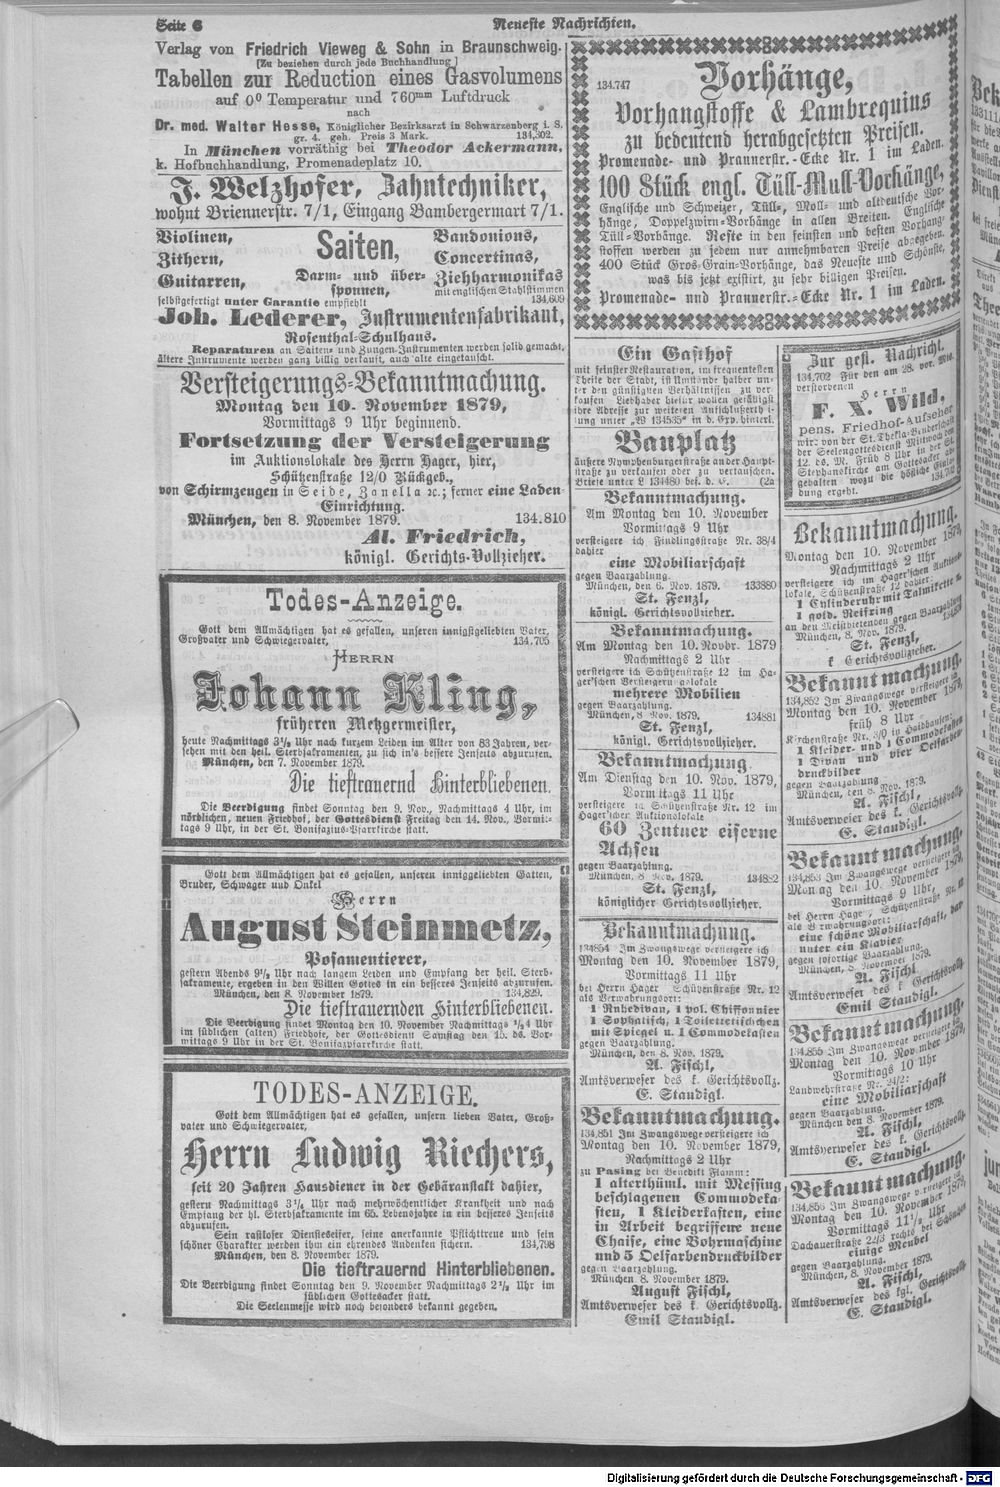 Seite 6
Neueste Nachrichten.
Verlag von Friedrich Vieweg & Sohn in Braunschweig.
[Zu beziehen durch jede Buchhandlung.]
Tabellen zur Reduction eines Gasvolumens
auf 0⁰ Temperatur und 760mm Luftdruck
nach
Dr. med. Walter Hesse, Königlicher Bezirksarzt in Schwarzenberg i. S.
gr. 4. geh. Preis 3 Mark. 134,302.
In München vorräthig bei Theodor Ackermann,
k. Hofbuchhandlung, Promenadeplatz 10.
J. Welzhofer, Zahntechniker,
wohnt Briennerstr. 7/1, Eingang Bambergermart 7/1.
Violinen,
Zithern,
Guitarren,
Saiten,
Darm- und über-
sponnen,
Bandonions,
Concertinas,
Ziehharmonikas
mit englischen Stahlstimmen
selbstgefertigt unter Garantie empfiehlt 134,609
Joh. Lederer, Instrumentenfabrikant,
Rosenthal-Schulhaus.
Reparaturen an Saiten- und Zungen-Instrumenten werden solid gemacht,
ältere Instrumente werden ganz billig verkauft, auch alte eingetauscht.
Versteigerungs-Bekanntmachung.
Montag den 10. November 1879,
Vormittags 9 Uhr beginnend.
Fortsetzung der Versteigerung
im Auktionslokale des Herrn Hager, hier,
Schützenstraße 12/0 Rückgeb.,
von Schirmzeugen in Seide, Zanella ꝛc.; ferner eine Laden-
Einrichtung.
München, den 8. November 1879. 134.810
Al. Friedrich,
königl. Gerichts-Vollzieher.
Todes-Anzeige.
Gott dem Allmächtigen hat es gefallen, unseren innigstgeliebten Vater,
Großvater und Schwiegervater, 134,705
HERRN
Johann Kling,
früheren Metzgermeister,
heute Nachmittags 3½ Uhr nach kurzem Leiden im Alter von 83 Jahren, ver-
sehen mit den heil. Sterbsakramenten, zu sich in's bessere Jenseits abzurufen.
München, den 7. November 1879.
Die tieftrauernd Hinterbliebenen.
Die Beerdigung findet Sonntag den 9. Nov., Nachmittags 4 Uhr, im
nördlichen, neuen Friedhof, der Gottesdienst Freitag den 14. Nov., Vormit-
tags 9 Uhr, in der St. Bonifazius-Pfarrkirche statt.
Gott dem Allmächtigen hat es gefallen, unseren inniggeliebten Gatten,
Bruder, Schwager und Onkel
Herrn
August Steinmetz,
Posamentierer,
gestern Abends 9½ Uhr nach langem Leiden und Empfang der heil. Sterb-
sakramente, ergeben in den Willen Gottes in ein besseres Jenseits abzurufen.
München, den 8. November 1879. 134,829.
Die tieftrauernden Hinterbliebenen.
Die Beerdigung findet Montag den 10. November Nachmittags ½4 Uhr
im südlichen (alten) Friedhofe, der Gottesdienst Samstag den 15. ds. Vor-
mittags 9 Uhr in der St. Bonifazpfarrkirche statt.
TODES-ANZEIGE.
Gott dem Allmächtigen hat es gefallen, unsern lieben Vater, Groß-
vater und Schwiegervater,
Herrn Ludwig Riechers,
seit 20 Jahren Hausdiener in der Gebäranstalt dahier,
gestern Nachmittags 3¼ Uhr nach mehrwöchentlicher Krankheit und nach
Empfang der hl. Sterbsakramente im 65. Lebensjahre in ein besseres Jenseits
abzurufen.
Sein rastloser Diensteseifer, seine anerkannte Pflichttreue und sein
schöner Charakter werden ihm ein ehrendes Andenken sichern. 134,798
München, den 8. November 1879.
Die tieftrauernd Hinterbliebenen.
Die Beerdigung findet Sonntag den 9. November Nachmittags 2½ Uhr im
südlichen Gottesacker statt.
Die Seelenmesse wird noch besonders bekannt gegeben.
134.747
Vorhänge,
Vorhangstoffe & Lambrequins
zu bedeutend herabgesetzten Preisen.
Promenade- und Prannerstr.-Ecke Nr. 1 im Laden.
100 Stück engl. Tüll-Mull-Vorhänge,
Englische und Schweizer, Tüll-, Moll- und altdeutsche Vor-
hänge, Doppelzwirn-Vorhänge in allen Breiten. Englische
Tüll-Vorhänge. Reste in den feinsten und besten Vorhang-
stoffen werden zu jedem nur annehmbaren Preise abgegeben.
400 Stück Gros-Grain-Vorhänge, das Neueste und Schönste,
was bis jetzt existirt, zu sehr billigen Preisen.
Promenade- und Prannerstr.-Ecke Nr. 1 im Laden.
Ein Gasthof
mit feinster Restauration, im frequentesten
Theile der Stadt, ist Umstände halber un-
ter den günstigsten Verhältnissen zu ver-
kaufen Liebhaber hiefür wollen gefälligst
ihre Adresse zur weiteren Anschlußerth i-
lung unter „W 134535“ in d. Exp. hinterl.
Bauplatz
äußere Nymphenburgerstraße an der Haupt-
straße zu verkaufen oder zu vertauschen.
Briefe unter L 134480 bef. d. E. (2a
Bekanntmachung.
Am Montag den 10. November
Vormittags 9 Uhr
versteigere ich Findlingstraße Nr. 38/4
dahier
eine Mobiliarschaft
gegen Baarzahlung.
München, den 6. Nov. 1879. 133880
St. Fenzl,
königl. Gerichtsvollzieher.
Bekanntmachung.
Am Montag den 10. Novbr. 1879
Nachmittags 2 Uhr
versteigere ich Schützenstraße 12 im Ha-
ger'schen Versteigerungslokale
mehrere Mobilien
gegen Baarzahlung.
München, 8. Nov. 1879. 134881
St. Fenzl,
königl. Gerichtsvollzieher.
Bekanntmachung
Am Dienstag den 10. Nov. 1879,
Vormittags 11 Uhr
versteigere ich Schützenstraße Nr. 12 im
Hager'schen Auktionslokale
60 Zentner eiserne
Achsen
gegen Baarzahlung.
München, 8. Nov. 1879. 134882
St. Fenzl,
königlicher Gerichtsvollzieher.
Bekanntmachung.
134854 Im Zwangswege versteigere ich
Montag den 10. November 1879,
Vormittags 11 Uhr
bei Herrn Hager Schützenstraße Nr. 12
als Verwahrungsort:
1 Ruhedivan, 1 pol. Chiffonnier
1 Sophatisch, 1 Toilettetischchen
mit Spiegel u. 1 Commodekasten
gegen Baarzahlung.
München, den 8. Nov. 1879.
A. Fischl,
Amtsverweser des k. Gerichtsvollz.
E. Staudigl.
Bekanntmachung.
134,851 Im Zwangswege versteigere ich
Montag den 10. November 1879,
Nachmittags 2 Uhr
zu Pasing bei Benedikt Flamm:
1 alterthüml. mit Messing
beschlagenen Commodeka-
sten, 1 Kleiderkasten, eine
in Arbeit begriffene neue
Chaise, eine Bohrmaschine
und 5 Oelfarbendruckbilder
gegen Baarzahlung.
München 8. November 1879.
August Fischl,
Amtsverweser des k. Gerichtsvollz.
Emil Staudigl.
Zur gefl. Nachricht.
134,702 Für den am 28. vor. Mts.
verstorbenen
Herrn
F. X. Wild,
pens. Friedhof-Aufseher
wird von der St. Thekla-Bruderschaft
der Seelengottesdienst Mittwoch den
12. ds. M. Früh 8 Uhr in der
Stephanskirche am Gottesacker ab-
gehalten wozu die höfliche Einla-
dung ergeht. 134,702
Bekanntmachung.
Montag den 10. November 1879,
Nachmittags 2 Uhr
versteigere ich im Hager'schen Auktions-
lokale, Schützenstraße 12 dahier:
1 Cylinderuhr mit Talmikette u.
1 gold. Reifring
an den Meistbietenden gegen Baarzahlung
München, 8. Nov. 1879.
St. Fenzl,
k. Gerichtsvollzieher.
Bekanntmachung.
134,852 Im Zwangswege versteigere ich
Montag den 10. November 1879,
früh 8 Uhr
Kirchenstraße Nr. 3/0 in Haidhausen:
1 Kleider- und 1 Commodekasten
1 Divan und vier Oelfarben-
druckbilder
gegen Baarzahlung
München, den 8. Nov. 1879.
A. Fischl,
Amtsverweser des k. Gerichtsvollz.
E. Staudigl.
Bekanntmachung.
134,853 Im Zwangswege versteigere ich
Montag den 10. November 1879,
Vormittags 9 Uhr,
bei Herrn Hager, Schützenstraße Nr. 12
als Verwahrungsort:
eine schöne Mobiliarschaft, dar-
unter ein Klavier
gegen sofortige Baarzahlung.
München, 8. November 1879.
A. Fischl
Amtsverweser des k. Gerichtsvollz.
Emil Staudigl.
Bekanntmachung.
134,855 Im Zwangswege versteigere ich
Montag den 10. November 1879,
Vormittags 10 Uhr
Landwehrstraße Nr. 24/2:
eine Mobiliarschaft
gegen Baarzahlung.
München den 8. November 1879.
A. Fischl,
Amtsverweser des k. Gerichtsvollz.
E. Staudigl.
Bekanntmachung.
134,856 Im Zwangswege versteigere ich
Montag den 10. November 1879,
Vormittags 11½ Uhr
Dachauerstraße 22/3 rechts bei
einige Meubel
gegen Baarzahlung.
München, 8. November 1879.
A. Fischl,
Amtsverweser des kgl. Gerichtsvollz.
E. Staudigl.
Digitalisierung gefördert durch die Deutsche Forschungsgemeinschaft - DFG